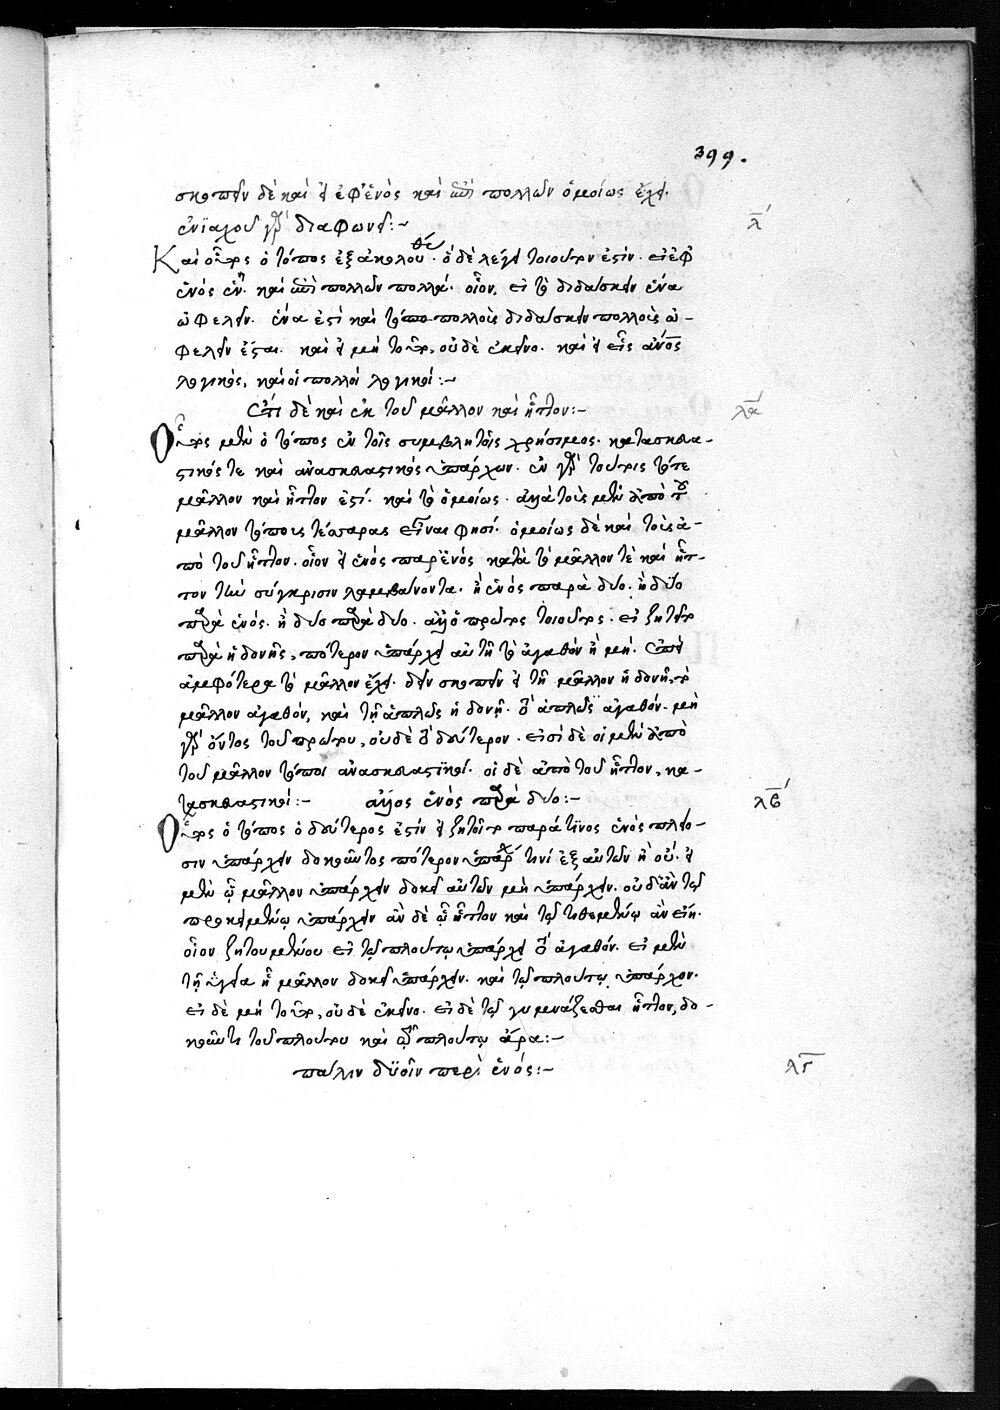 399.
σκοπεῖν δὲ καὶ εἰ ἐφ' ἑνὸς καὶ ἐπὶ πολλῶν ὁμοίως ἔχει.
ἐνιαχοῦ γὰρ διαφωνεῖ:~ λ'
Καὶ οὗτος ὁ τόπος ἐξ ἀκολουθί. ὃ δὲ λέγει τοιοῦτον ἐστίν. εἰ ἐφ'
ἑνὸς ἓν. καὶ ἐπὶ πολλῶν πολλά. οἷον, εἰ τὸ διδάσκειν ἕνα
ὠφελεῖν. ἕνα ἐστὶ καὶ τὸ πολλοὺς διδάσκειν πολλοὺς ὠ-
φελεῖν ἔσται. καὶ εἰ μὴ τοῦτο, οὐδὲ ἐκεῖνο. καὶ εἰ εἷς ἄνος
λογικός, καὶ οἱ πολλοὶ λογικοί:~
Ἔτι δὲ καὶ ἐκ τοῦ μᾶλλον καὶ ἧττον:~ λα'
Οὗτος μὲν ὁ τόπος ἐν τοῖς συμβλητοῖς χρήσιμος. κατασκευα-
στικός τε καὶ ἀνασκευαστικὸς ὑπάρχων. ἐν γὰρ τούτοις τό τε
μᾶλλον καὶ ἧττον ἐστί. καὶ τὸ ὁμοίως. ἀλλὰ τοὺς μὲν ἀπὸ τοῦ
μᾶλλον τόπους τέσσαρας εἶναι φησί. ὁμοίως δὲ καὶ τοὺς ἀ-
πὸ τοῦ ἧττον. οἷον εἰ ἑνὸς παρ' ἑνὸς κατὰ τὸ μᾶλλον τὲ καὶ ἧτ-
τον τὴν σύγκρισιν λαμβάνοντα. ἢ ἑνὸς παρὰ δύο. ἢ δύο
παρὰ ἑνός. ἢ δύο παρὰ δύο. ἀλλ' ὁ πρῶτος τοιοῦτος. εἰ ζητεῖται
παρὰ ἡδονῆς, πότερον ὑπάρχει αὐτῇ τὸ ἀγαθὸν ἢ μή. ἐπεὶ
ἀμφότερα τὸ μᾶλλον ἔχει. δεῖν σκοπεῖν εἰ τῇ μᾶλλον ἡδονῇ, τὸ
μᾶλλον ἀγαθόν, καὶ τῇ ἁπλῶς ἡδονῇ. τὸ ἁπλῶς ἀγαθόν. μὴ
γὰρ ὄντος τοῦ πρώτου, οὐδὲ τὸ δεύτερον. εἰσὶ δὲ οἱ μὲν ἀπὸ
τοῦ μᾶλλον τόποι ἀνασκευαστικοί. οἱ δὲ ἀπὸ τοῦ ἧττον, κα-
τασκευαστικοί:~ ἄλλος ἑνὸς παρὰ δύο:~ λβ'
Οὗτος ὁ τόπος ὁ δεύτερος ἐστὶν εἰ ζητοῖτο παρά τινος ἑνὸς πλείο-
σιν ὑπάρχειν δοκοῦντος πότερον ὑπάρχ τινὶ ἐξ αὐτῶν ἢ οὔ. εἰ
μὲν ᾧ μᾶλλον ὑπάρχειν δοκεῖ αὐτῶν μὴ ὑπάρχειν. οὐδ' ἂν τῷ
προκειμένῳ ὑπάρχειν ἂν δὲ ᾧ ἧττον καὶ τῷ τιθεμένῳ ἂν εἴη.
οἷον ζητουμένου εἰ τῷ πλούτῳ ὑπάρχει τὸ ἀγαθόν. εἰ μὲν
τῇ ὑγείᾳ ᾗ μᾶλλον δοκεῖ ὑπάρχειν. καὶ τῷ πλούτῳ ὑπάρχον.
εἰ δὲ μὴ τοῦτο, οὐδὲ ἐκεῖνο. εἰ δὲ τῷ γυμνάζεσθαι ἧττον, δο-
κοῦντι τοῦ πλούτου καὶ τῷ πλούτῳ ἄρα:~
πάλιν δυοῖν περὶ ἑνός:~ λγ